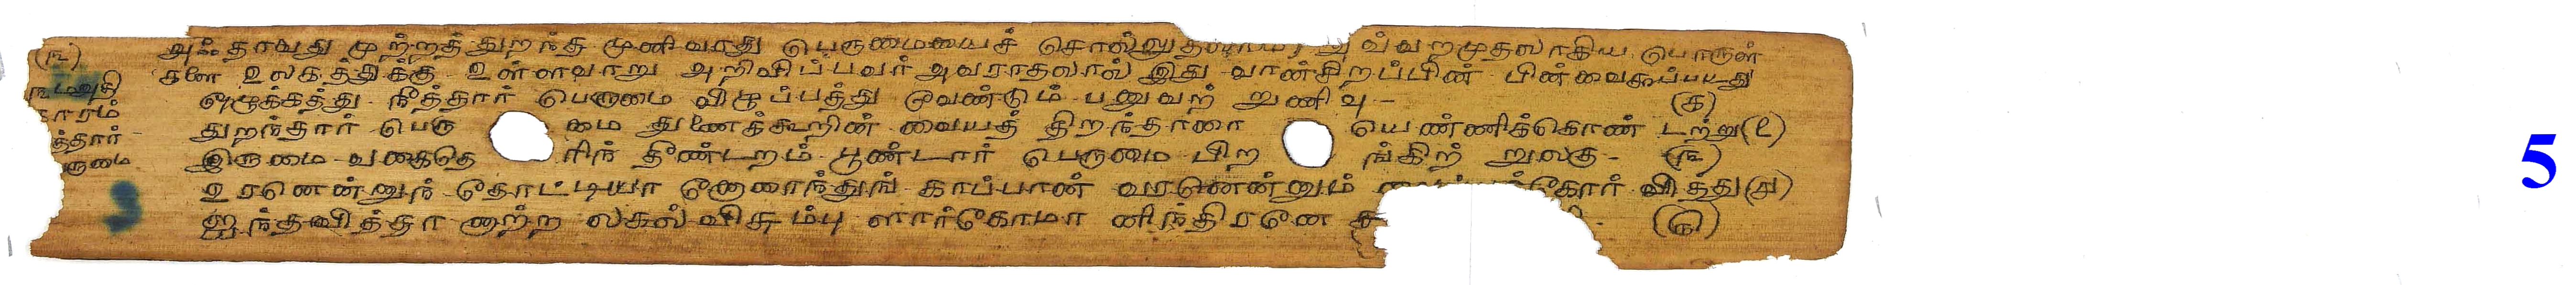 (௩) அஃதாவது முற்றத்துறந்த முணிவரது பெருமையைச் சொல்லுதலாம் அவ்வறமுதலாகிய பொருள்
களை உலகத்துக்கு உள்ளவாறு அறிவிப்பவர் அவராதலால் இது வான்சிறப்பின் பின்வைகூப்பபட்டது
ஒழுக்கத்து நீத்தார் பெருமை விழுப்பத்து வேண்டும் பனுவற் றுணிவு - (க)
துறந்தார் பெரு மை துணைக்கூறின் வையத் திறந்தாரை யெண்ணிக்கொண் டற்று (௨)
இருமை வகைதெ ரிந் தீண்டறம் பூண்டார் பெருமை பிற ங்கிற் றுலகு - (௩)
உரனென்னுந் தோட்டியா னோரைந்துங் காப்பான் வரனென்னும் கோர் வித்து (௪)
ஐந்தவித்தா னாற்ற லகல்விசும்பு ளார்கோமா னிந்திரனே ச (௫)
காரம்
த்தார்
ருமை
5